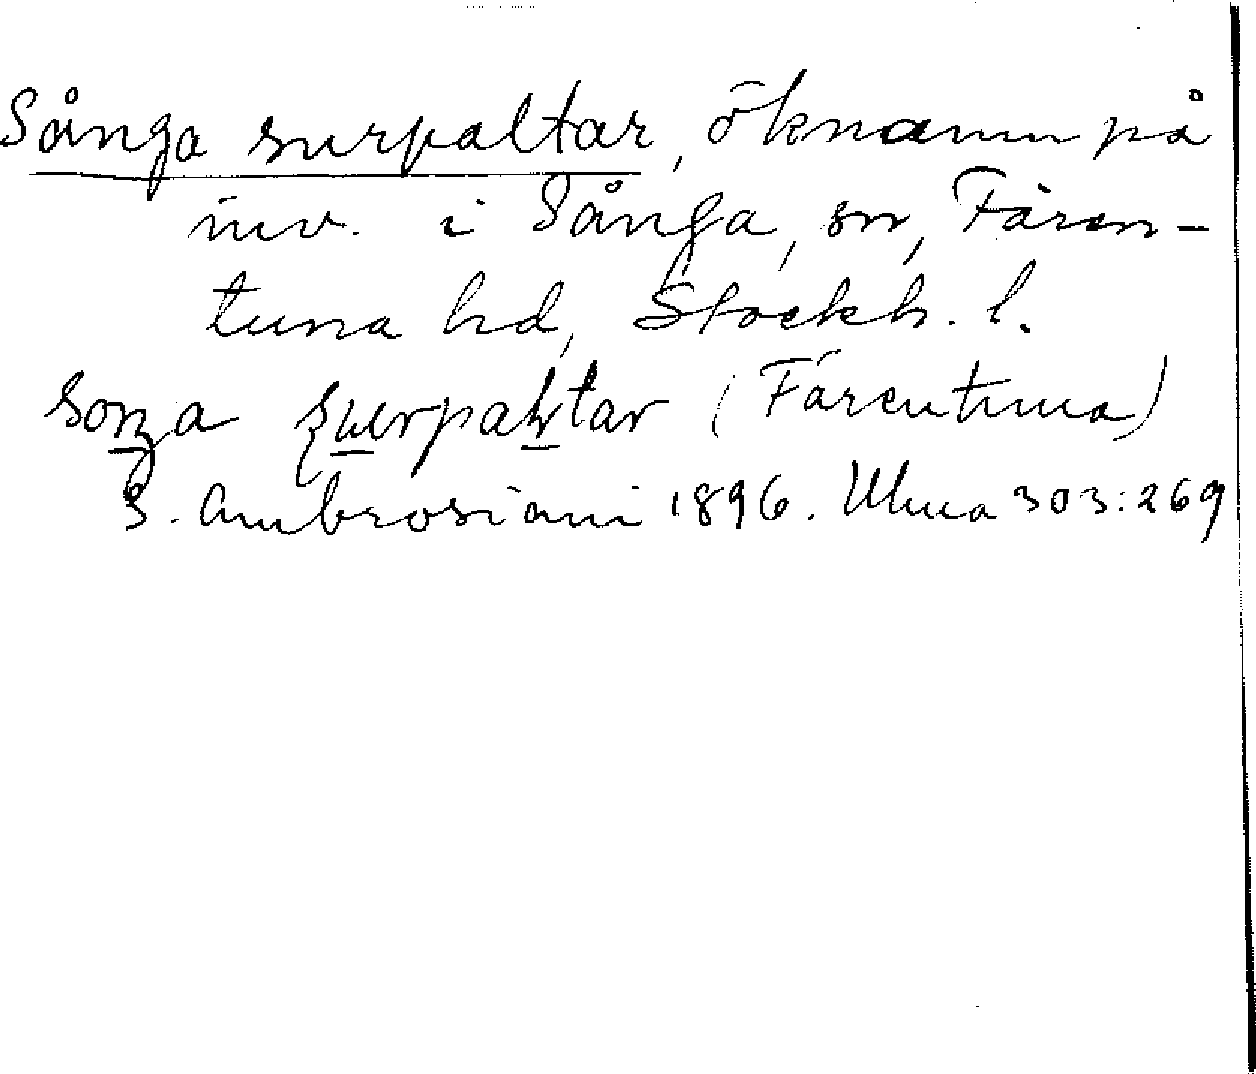 Sånga surpaltar, öknamn på
inv. i Sånga, sn, Fären-
tuna hd, Stockh. l.
(Färentuna)
S. Ambrosiani 1896. Ulma 303:269